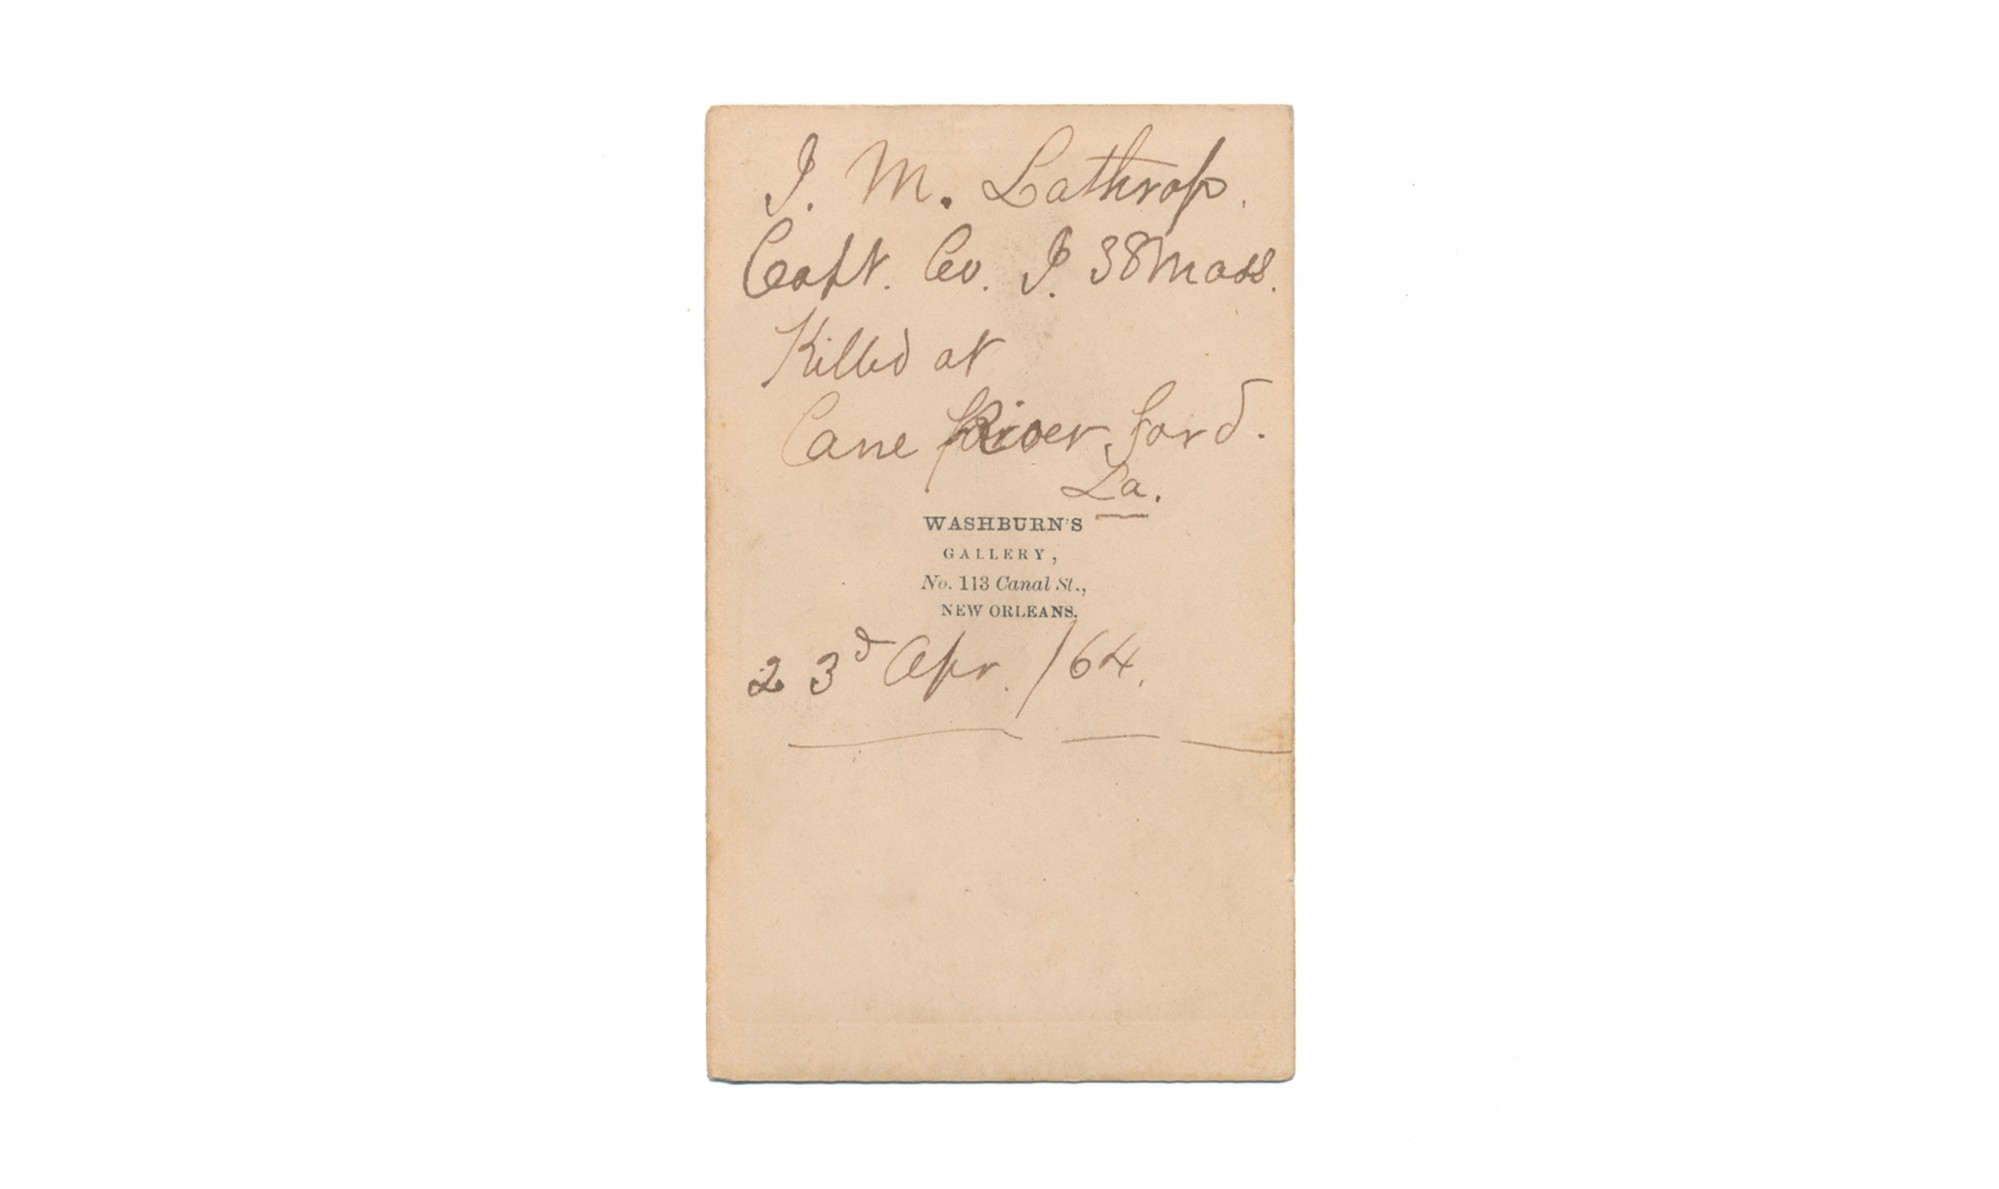 J. M. Lathrop.
Capt. Co. I. 38 Mass.
Killed at
Cane River ford.
La.
WASHBURN'S
GALLERY,
No. 113 Canal St.,
NEW ORLEANS.
23d Apr. /64.